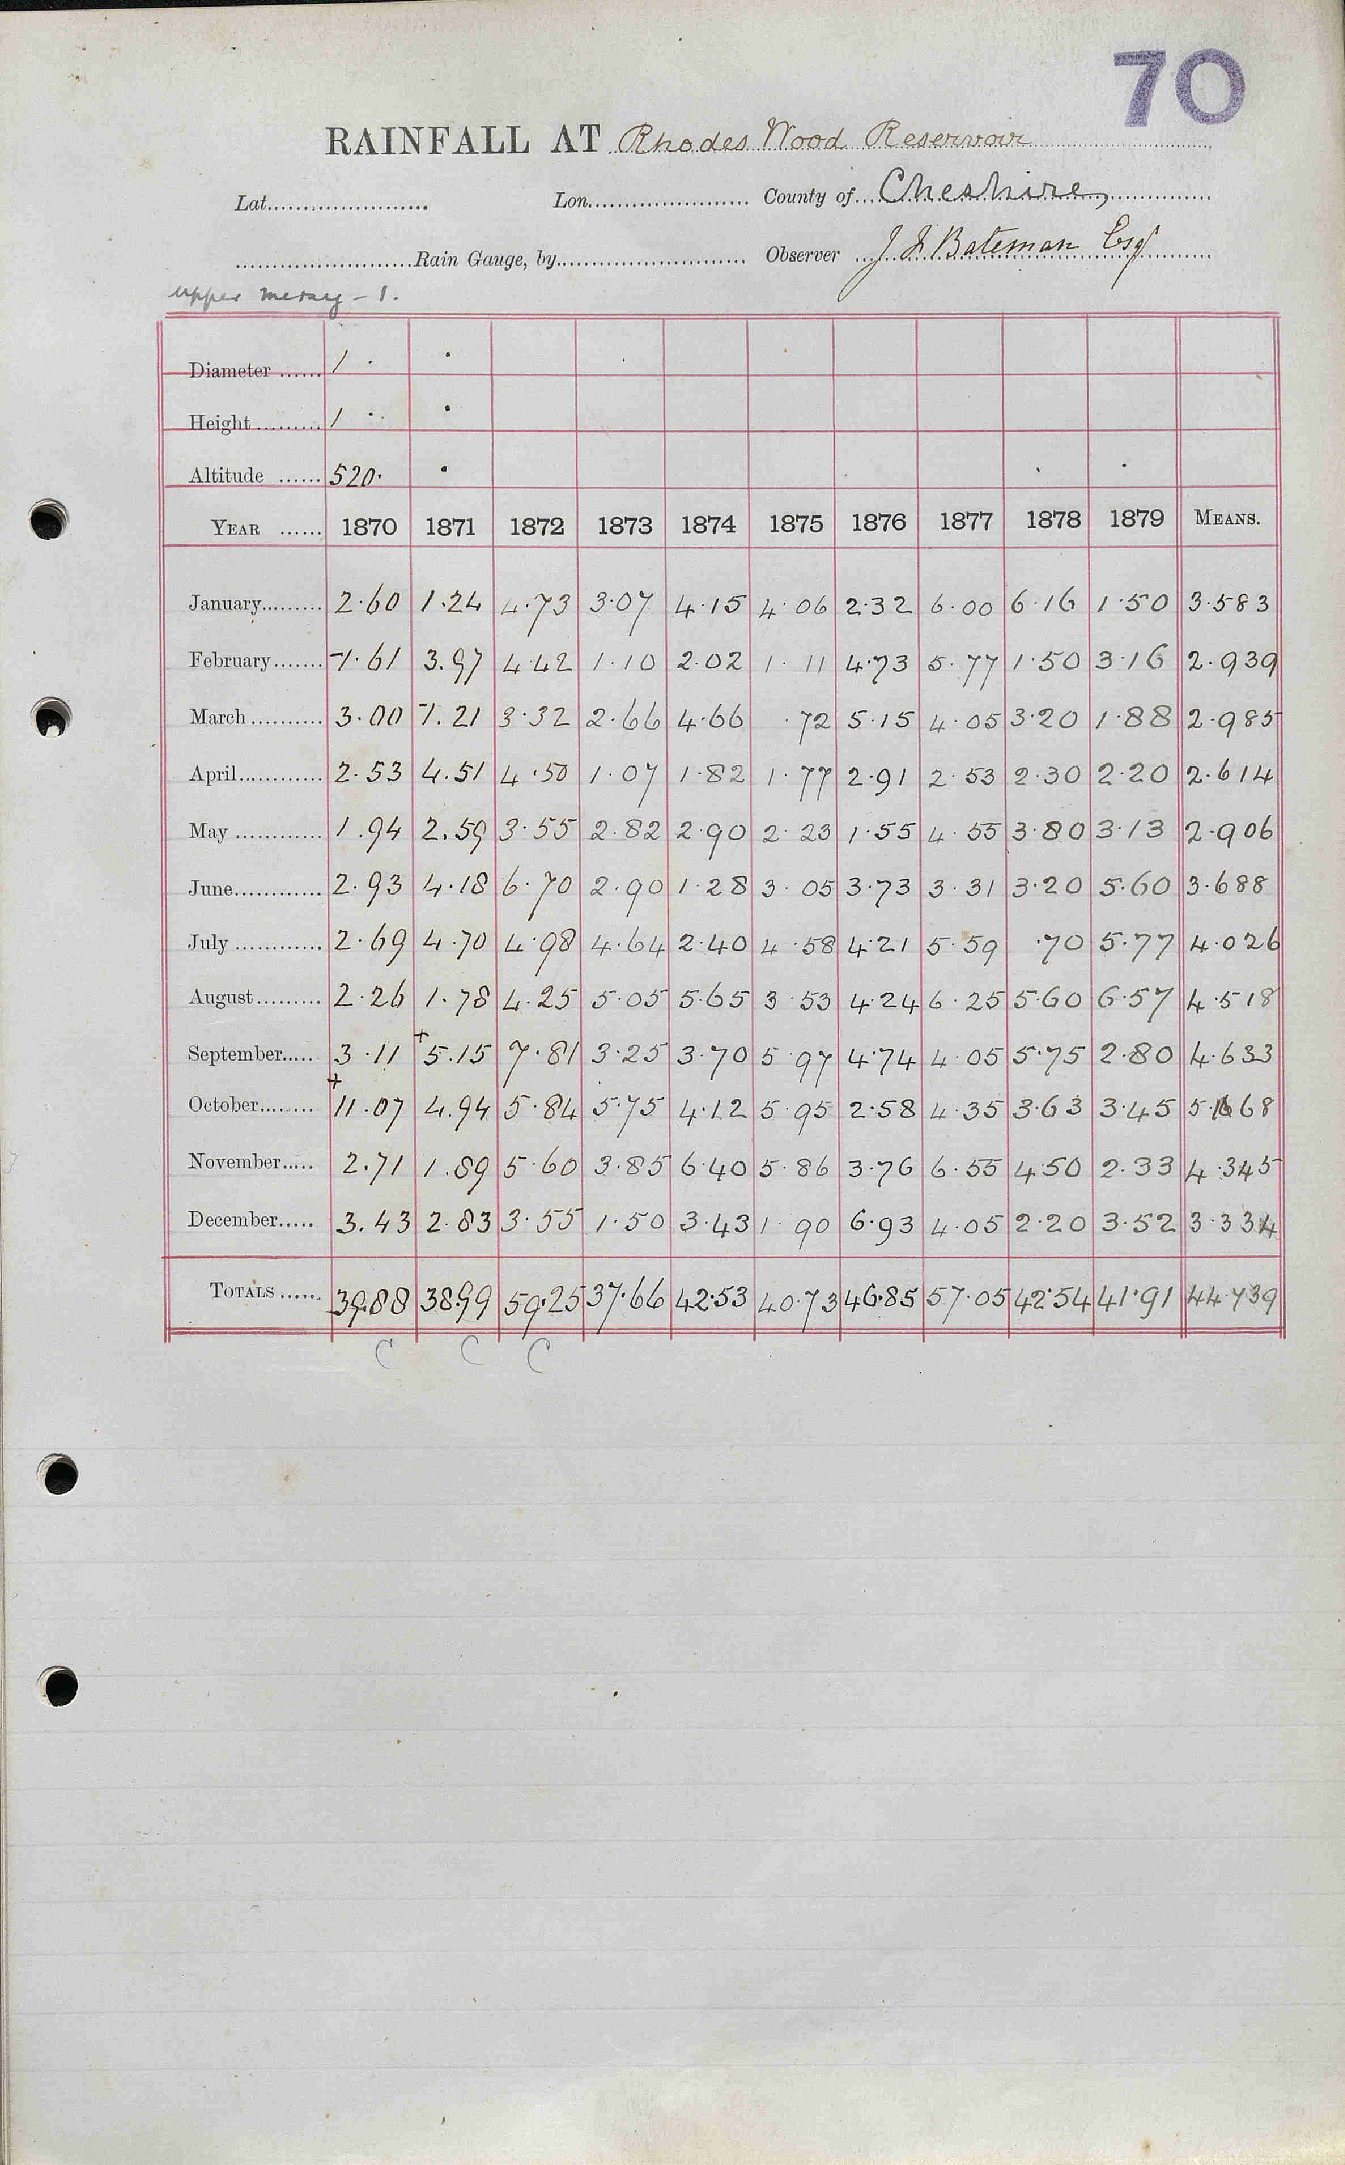 70
RAINFALL AT Rhodes Wood Reservoir
Lat. Lon. County of Cheshire
Rain Gauge, by Observer J F Bateman Esqr
Upper Mersey - 1.
Diameter 1
Height 1
Altitude 520.
YEAR 1870 1871 1872 1873 1874 1875 1876 1877 1878 1879 MEANS.
January 2.60 1.24 4.73 3.07 4.15 4.06 2.32 6.00 6.16 1.50 3.583
February 1.61 3.97 4.42 1.10 2.02 1.11 4.73 5.77 1.50 3.16 2.939
March 3.00 1.21 3.32 2.66 4.66 .72 5.15 4.05 3.20 1.88 2.985
April 2.53 4.51 4.50 1.07 1.82 1.77 2.91 2.53 2.30 2.20 2.614
May 1.94 2.59 3.55 2.82 2.90 2.23 1.55 4.55 3.80 3.13 2.906
June 2.93 4.18 6.70 2.90 1.28 3.05 3.73 3.31 3.20 5.60 3.688
July 2.69 4.70 4.98 4.64 2.40 4.58 4.21 5.59 .70 5.77 4.026
August 2.26 1.78 4.25 5.05 5.65 3.53 4.24 6.25 5.60 6.57 4.518
September 3.11 +5.15 7.81 3.25 3.70 5.97 4.74 4.05 5.75 2.80 4.633
October +11.07 4.94 5.84 5.75 4.12 5.95 2.58 4.35 3.63 3.45 5.168
November 2.71 1.89 5.60 3.85 6.40 5.86 3.76 6.55 4.50 2.33 4.345
December 3.43 2.83 3.55 1.50 3.43 1.90 6.93 4.05 2.20 3.52 3.334
TOTALS 39.88 38.99 59.25 37.66 42.53 40.73 46.85 57.05 42.54 41.91 44.739
C C C